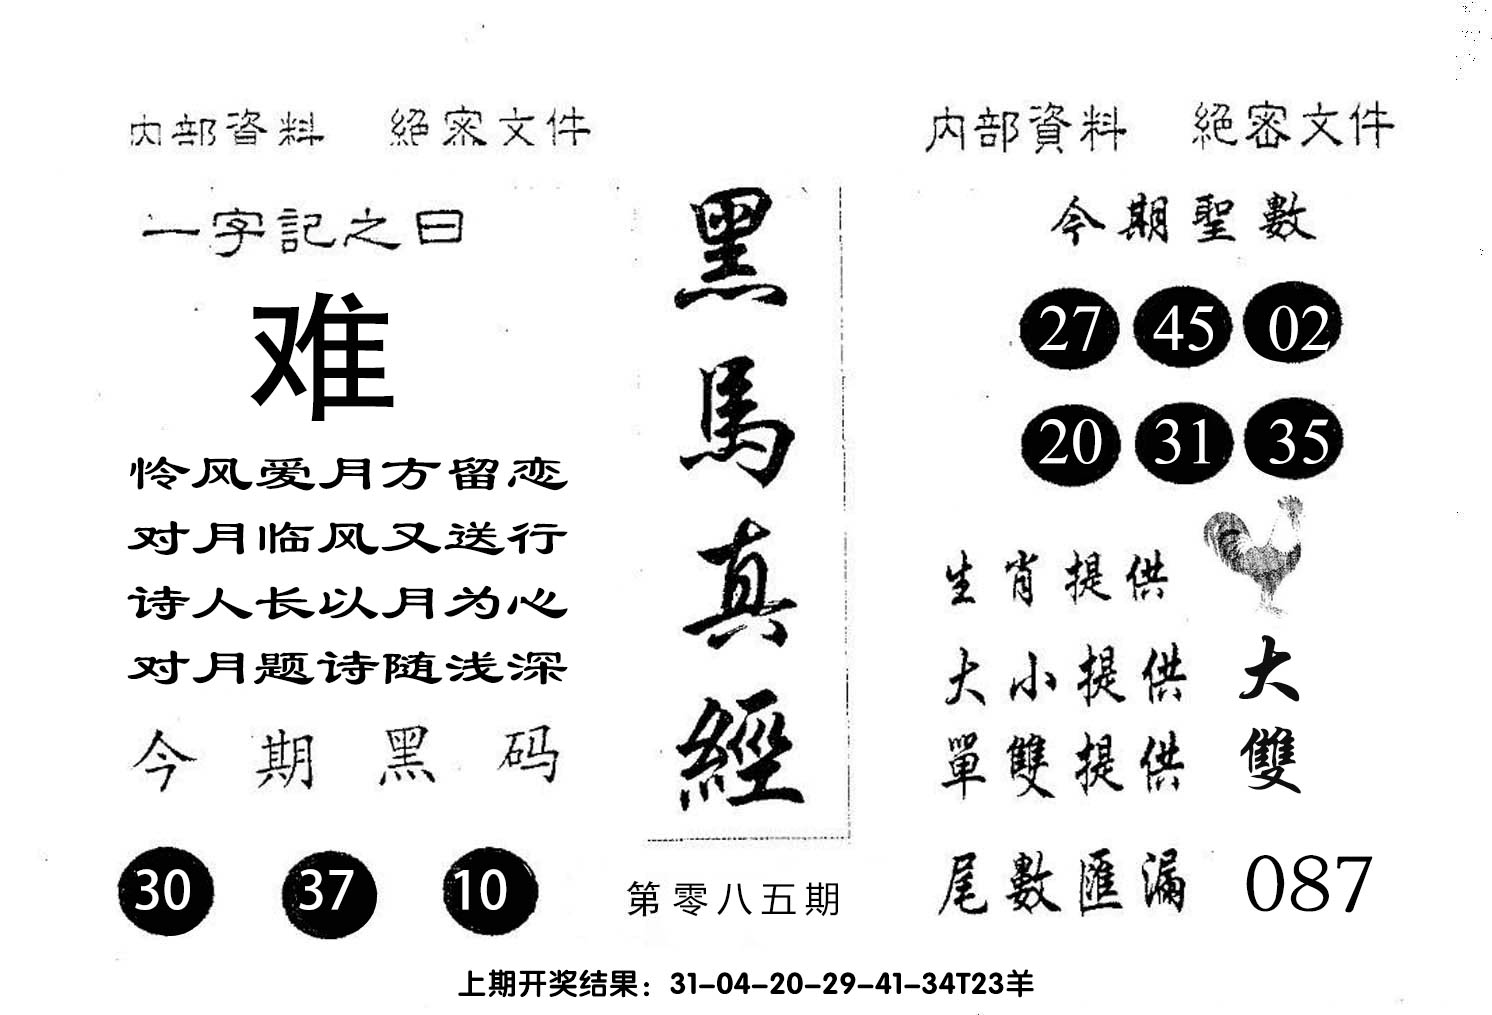 内部資料 絕密文件
一字記之曰
难
怜风爱月方留恋
对月临风又送行
诗人长以月为心
对月题诗随浅深
今期黑码
30 37 10
黑馬真經
第零八五期
内部資料 絕密文件
今期聖數
27 45 02
20 31 35
生肖提供
大小提供 大
單雙提供 雙
尾數匯漏 087
上期开奖结果：31-04-20-29-41-34T23羊